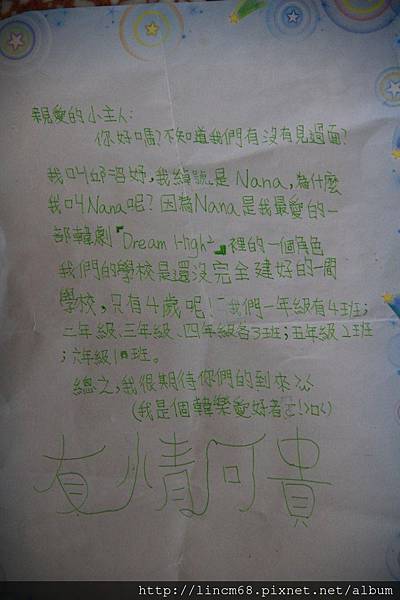 親愛的小主人:
你好嗎?不知道我們有沒有見過面?
我叫邱滔妡,我綽號是Nana,為什麼
我叫Nana呢?因為Nana是我最愛的一
部韓劇『Dream High2』裡的一個角色
我們的學校是還沒完全建好的一間
學校,只有4歲呢!我們一年級有4班;
二年級、三年級、四年級各3班;五年級2班
;六年級1班。
總之,我很期待你們的到來
(我是個韓樂愛好者
有情可貴
http://lincm68.pixnet.net/album